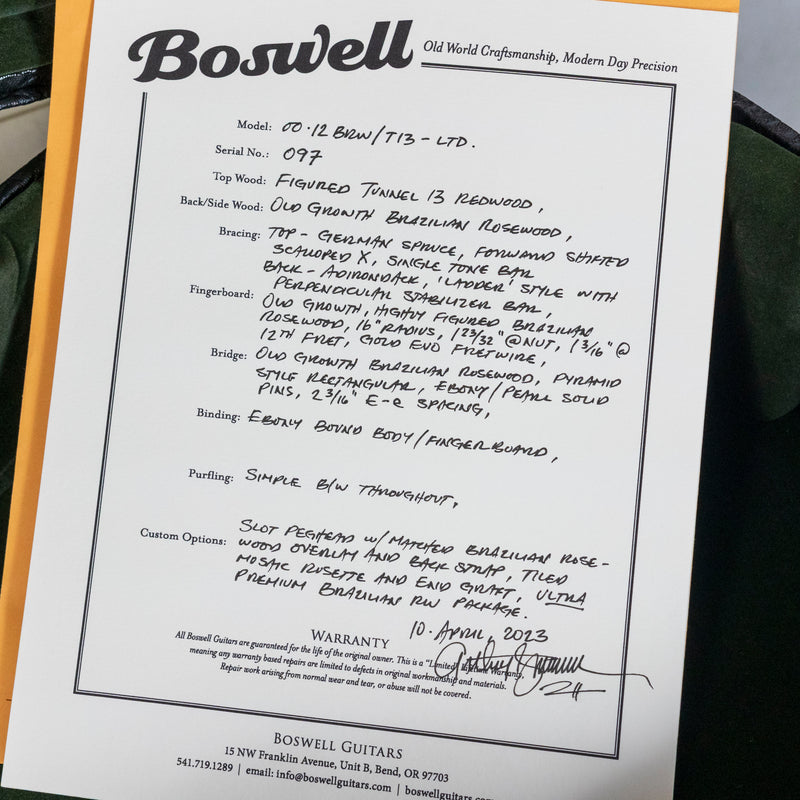 Boswell Old World Craftsmanship, Modern Day Precision
Model: 00·12 BRW/T13 – LTD.
Serial No.: 097
Top Wood: FIGURED TUNNEL 13 REDWOOD,
Back/Side Wood: OLD GROWTH BRAZILIAN ROSEWOOD,
Bracing: TOP – GERMAN SPRUCE, FORWARD SHIFTED
SCALLOPED X, SINGLE TONE BAR
BACK – ADIRONDACK, 'LADDER' STYLE WITH
PERPENDICULAR STABILIZER BAR,
Fingerboard: OLD GROWTH, HIGHLY FIGURED BRAZILIAN
ROSEWOOD, 16" RADIUS, 1 23/32" @ NUT, 1 3/16" @
12TH FRET, GOLD EVO FRETWIRE,
Bridge: OLD GROWTH BRAZILIAN ROSEWOOD, PYRAMID
STYLE RECTANGULAR, EBONY/PEARL SOLID
PINS, 2 3/16" E-e SPACING,
Binding: EBONY BOUND BODY/FINGERBOARD,
Purfling: SIMPLE B/W THROUGHOUT,
Custom Options: SLOT PEGHEAD W/MATCHED BRAZILIAN ROSE-
WOOD OVERLAY AND BACK STRAP, TILED
MOSAIC ROSETTE AND END GRAFT, ULTRA
PREMIUM BRAZILIAN RW PACKAGE.
10·APRIL, 2023
WARRANTY
All Boswell Guitars are guaranteed for the life of the original owner. This is a "Limited" Lifetime Warranty,
meaning any warranty based repairs are limited to defects in original workmanship and materials.
Repair work arising from normal wear and tear, or abuse will not be covered.
BOSWELL GUITARS
15 NW Franklin Avenue, Unit B, Bend, OR 97703
541.719.1289 | email: info@boswellguitars.com | boswellguitars.com